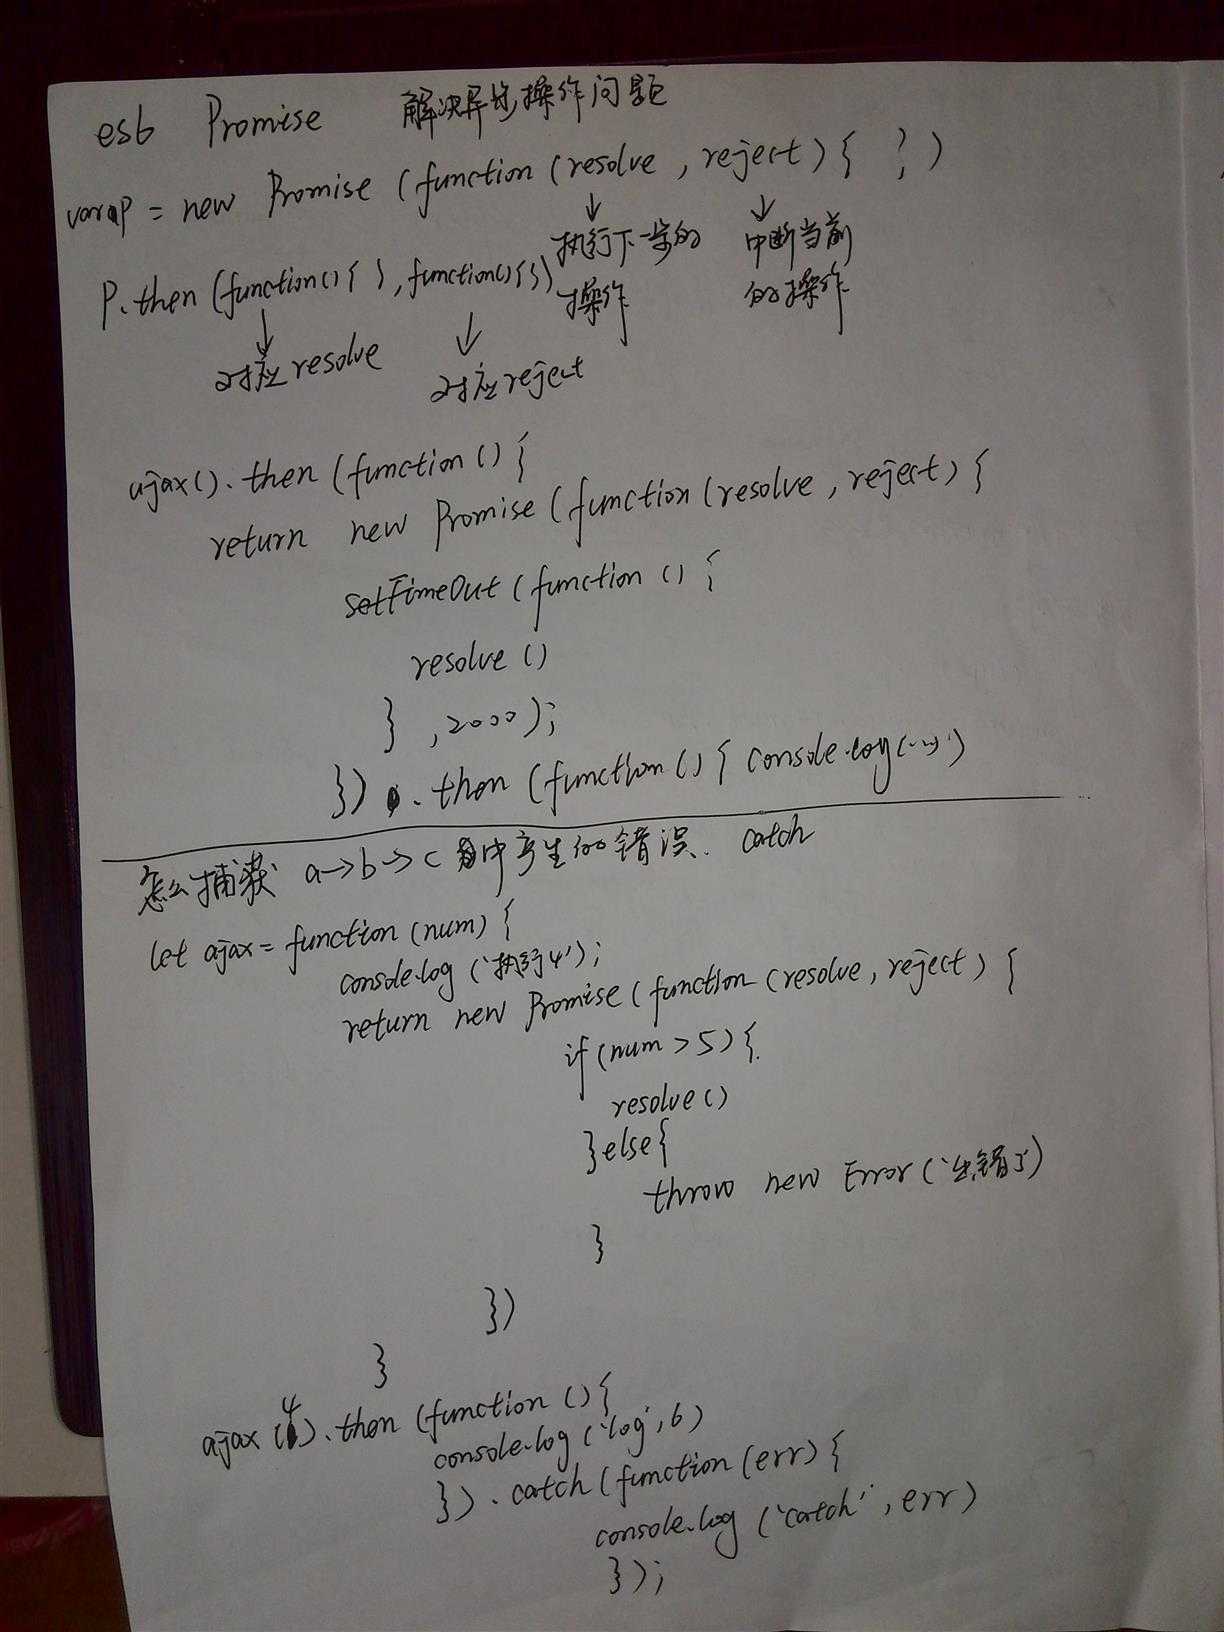 es6 Promise 解决异步操作问题
var p = new Promise (function (resolve , reject) { } )
执行下一步的 中断当前
P.then (function () { } , function () { })
操作 的操作
对应 resolve 对应 reject
ajax(). then (function () {
return new Promise (function (resolve , reject) {
setTimeOut (function () {
resolve ()
} , 2000 );
}) . then (function () { console.log(...)
怎么捕获 a→b→c 中产生的错误. catch
let ajax = function (num) {
console.log ('执行4');
return new Promise (function (resolve, reject) {
if (num > 5) {
resolve ()
}else{
throw new Error ('出错了)
}
})
}
ajax (4). then (function () {
console.log ('log', 6)
}) . catch (function (err) {
console.log ('catch' , err)
});